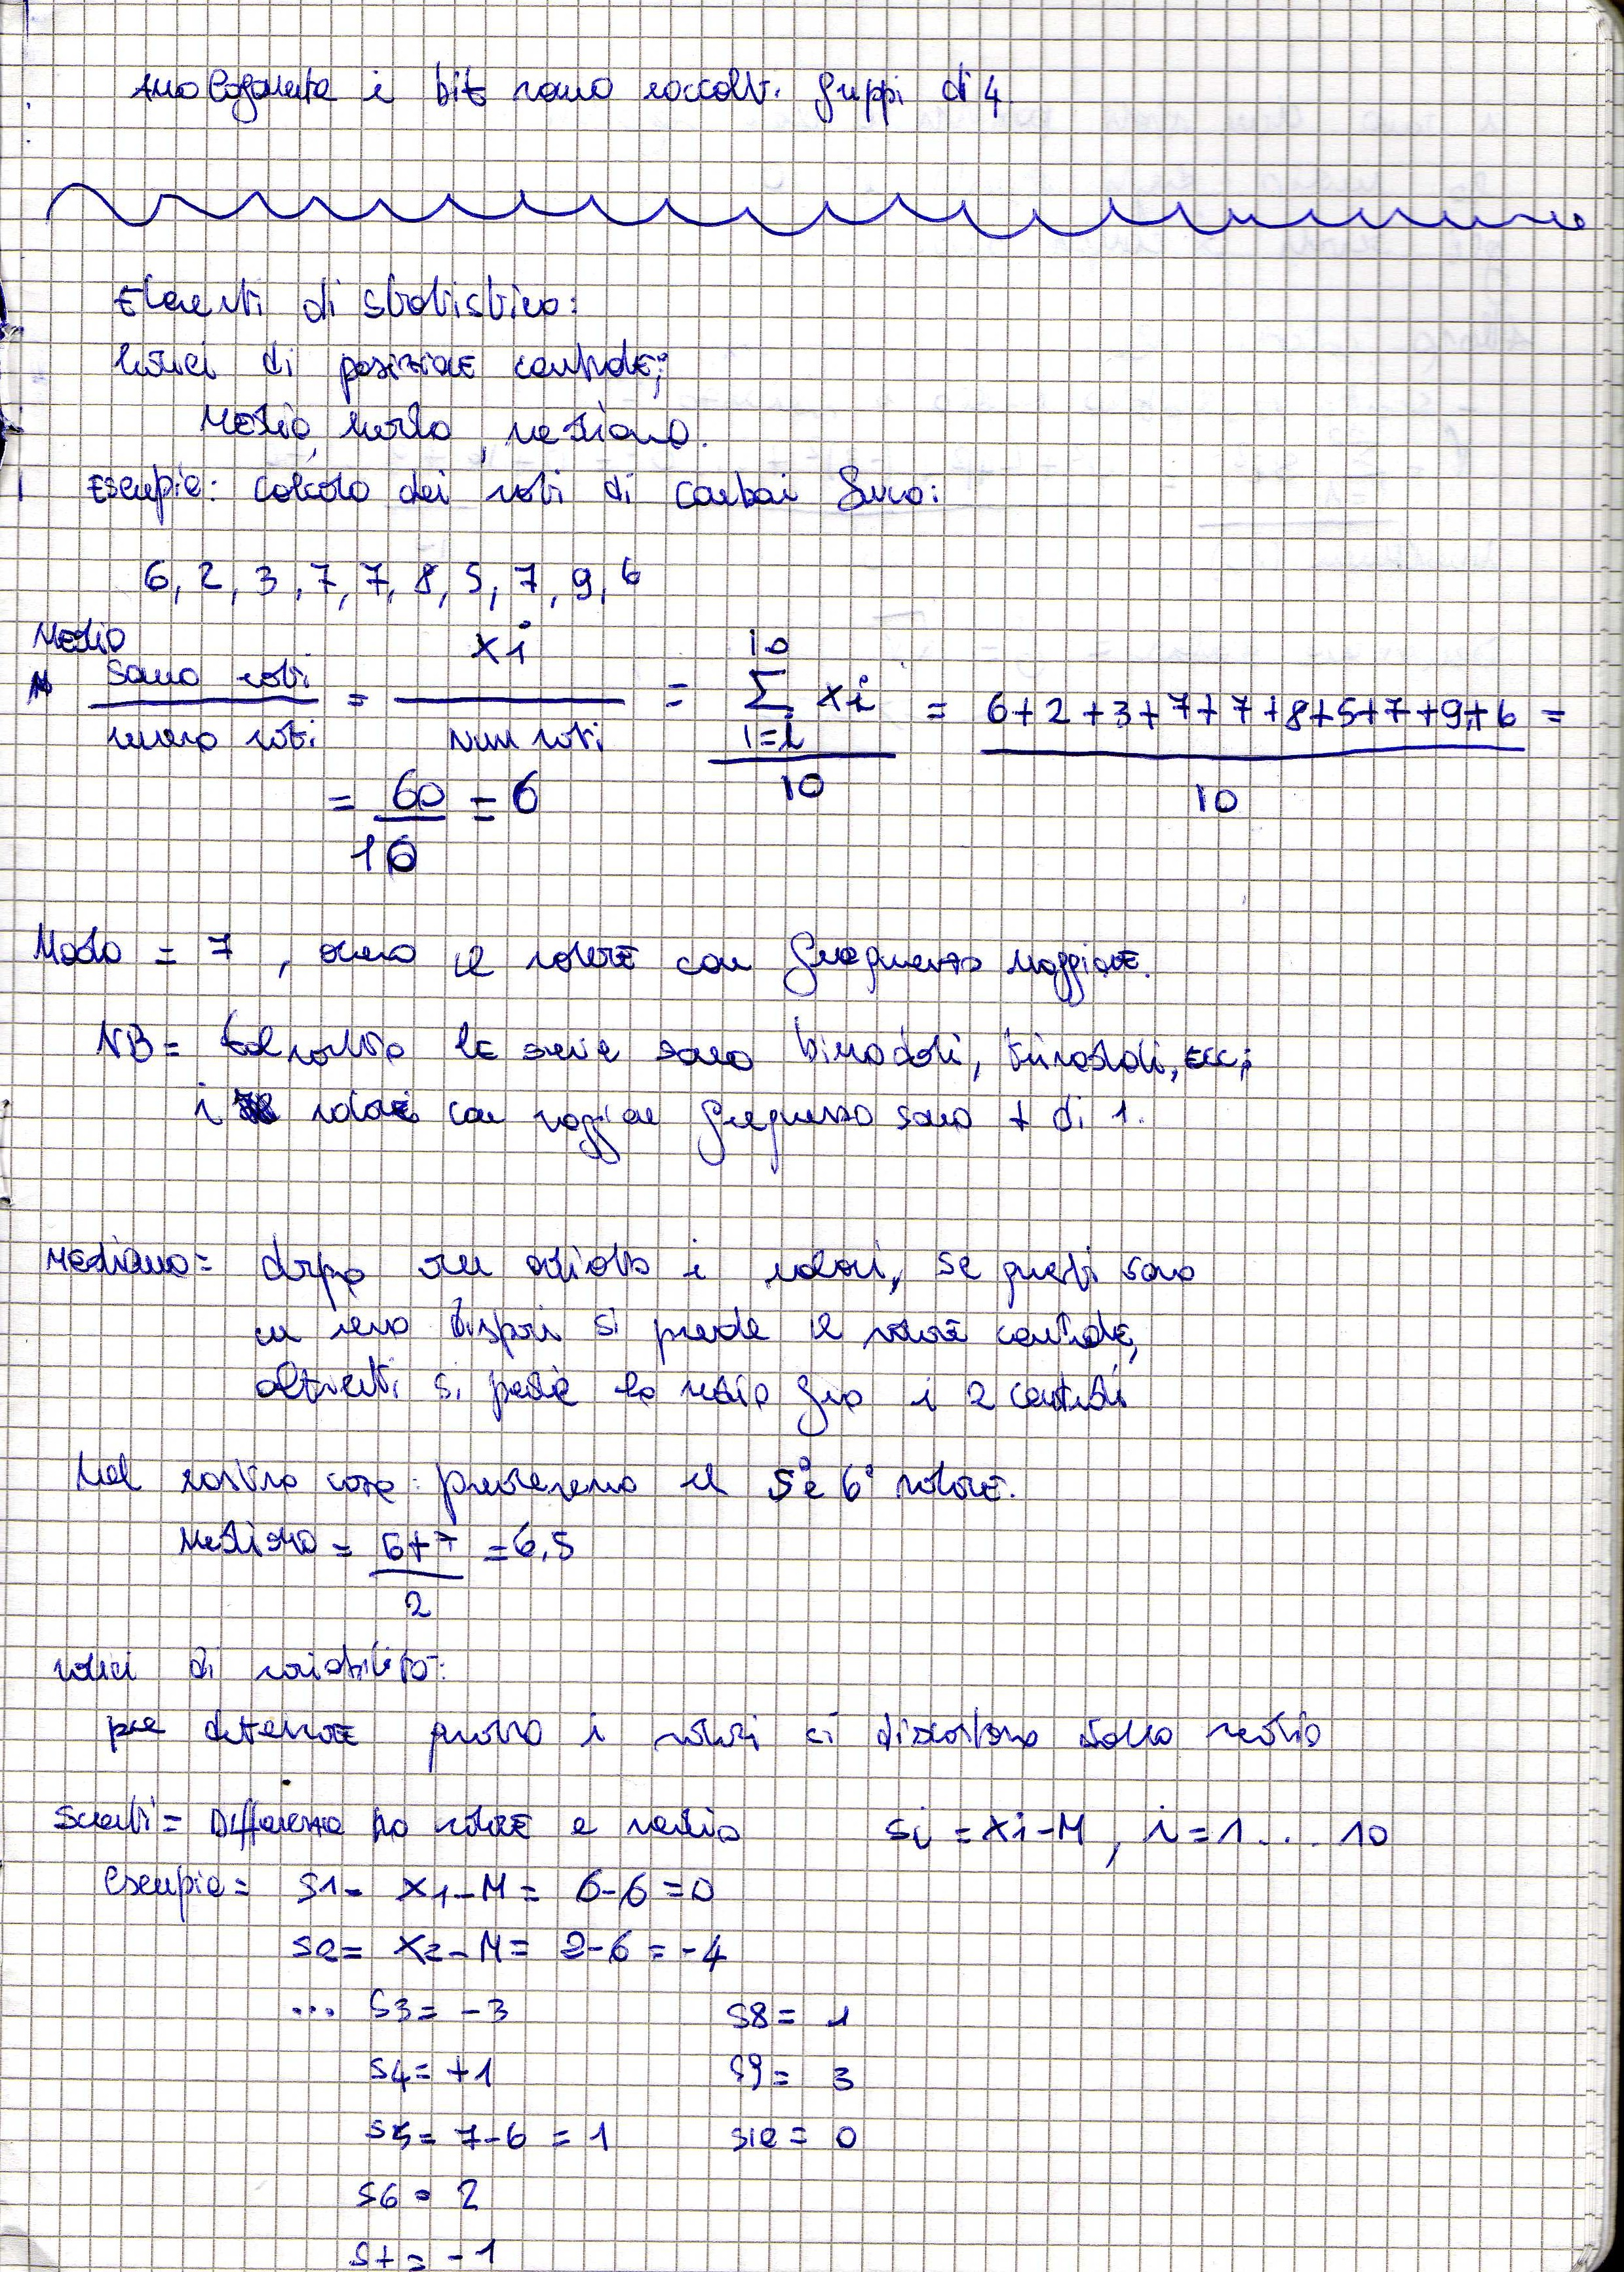 Analogamente i bit vanno raccolti gruppi di 4.
Elementi di statistica:
Indici di posizione centrale;
Media, moda, mediana.
Esempio: calcolo dei voti di
6, 2, 3, 7, 7, 8, 5, 7, 9, 6
Media
somma voti / numero voti = xi / num voti = 10 Σ i=1 xi / 10 = 6+2+3+7+7+8+5+7+9+6 / 10 =
= 60 / 10 = 6
Moda = 7, ovvero il valore con frequenza maggiore.
NB = talvolta le serie sono bimodali, trimodali, ecc;
i valori con maggiore frequenza sono + di 1.
Mediana = dopo aver ordinato i valori, se questi sono
in num dispari si prende il valore centrale,
altrimenti si prende la media fra i 2 centrali
Nel nostro caso: prenderemo il 5° e 6° valore.
Mediana = 6+7 / 2 = 6,5
Indici di variabilità:
per determinare quanto i valori si discostano dalla media
Scarti = Differenza tra valore e media si = xi-M, i=1 .... 10
Esempio = S1 = x1-M = 6-6=0
S2= x2-M= 2-6 = -4
... S3= -3 S8= 1
S4= +1 S9= 3
S5= 7-6 = 1 S10= 0
S6 = 2
S7= -1